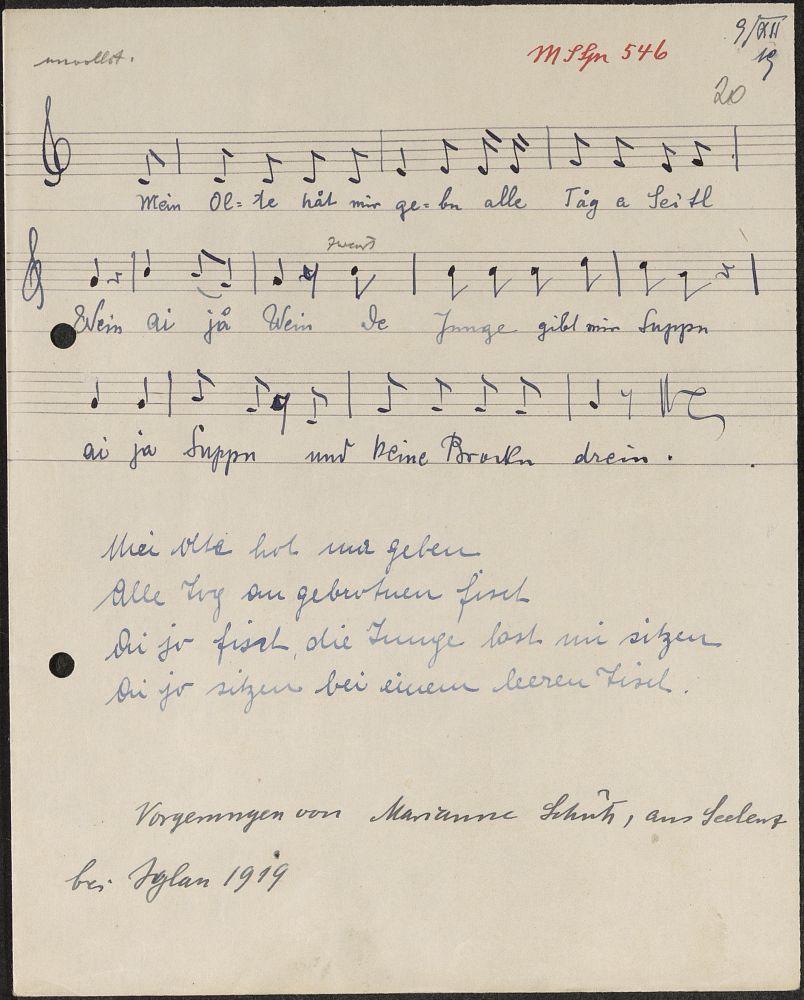 unvollst.
MSSpr 546
9/XII
19
20
Mein Ol=te håt mir ge=bn alle Tåg a Seitl
zweit
Wein ai jå Wein De Junge gibt mir Suppn
ai ja Suppn und keine Brockn drein.
Mei Olte hot ma geben
Alle Tog an gebrotnen fisch
Ai jo fisch, die Junge lost mi sitzen
Ai jo sitzen bei einem leeren Tisch.
Vorgesungen von Marianne Schütz, aus Seelenz
bei Iglau 1919